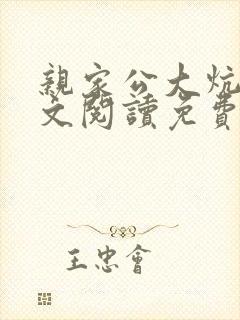 親家公大炕
文閱讀免費
王忠會